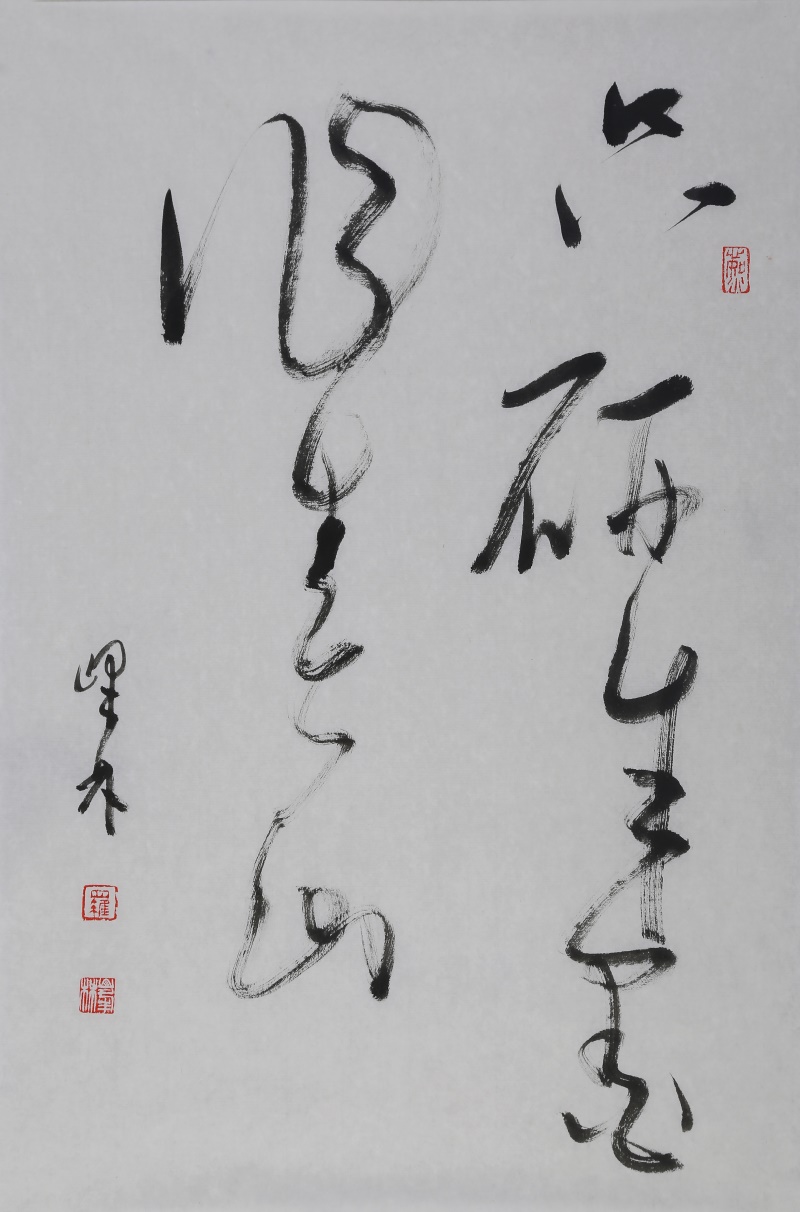 只研朱墨
作春山
羅